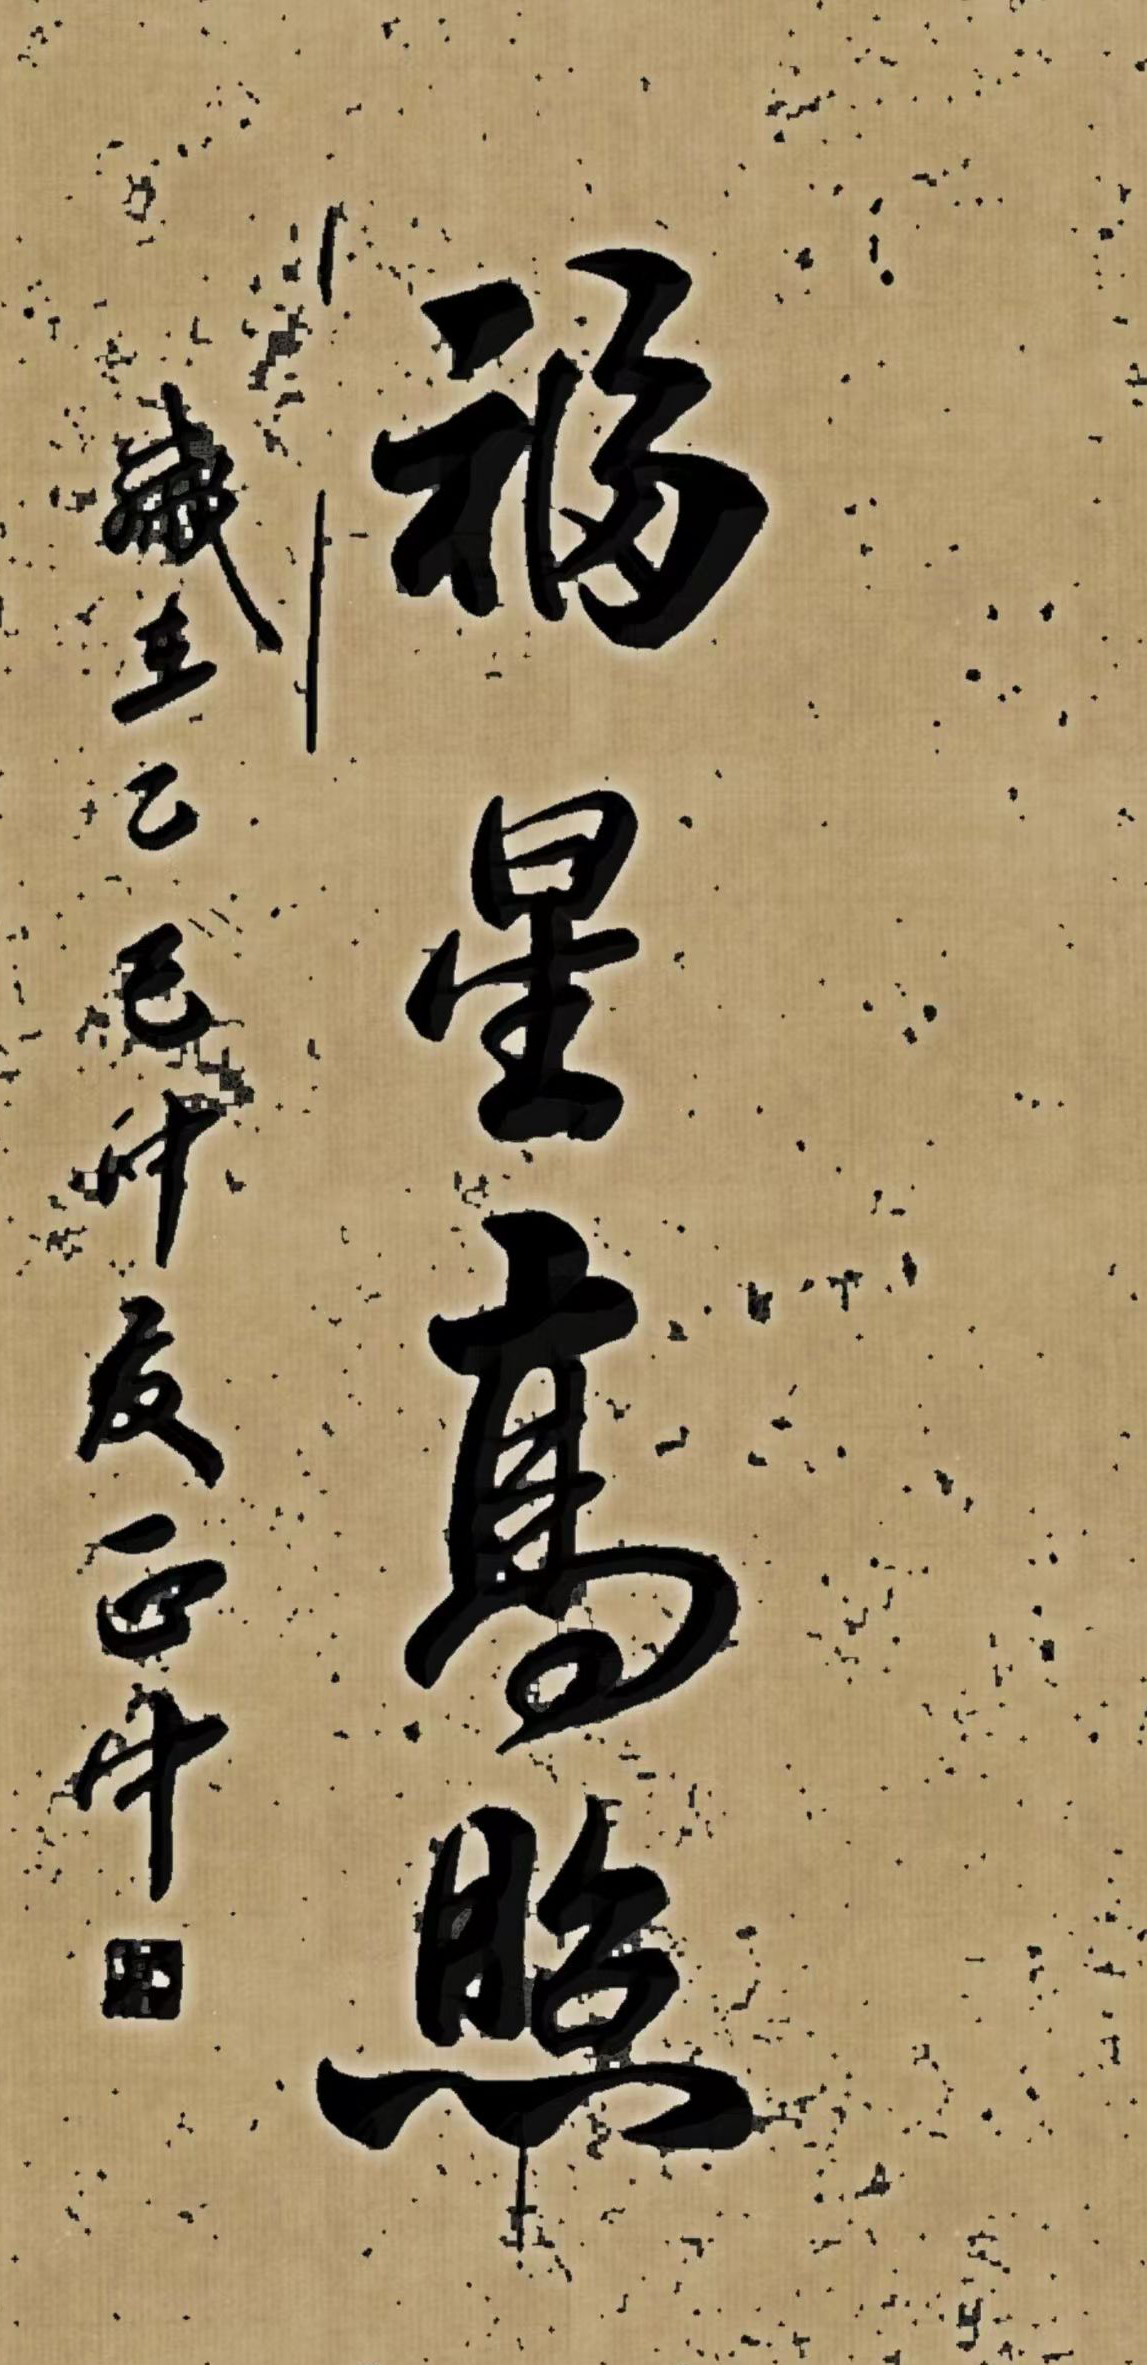 福星高照
歲在乙巳仲夏正中